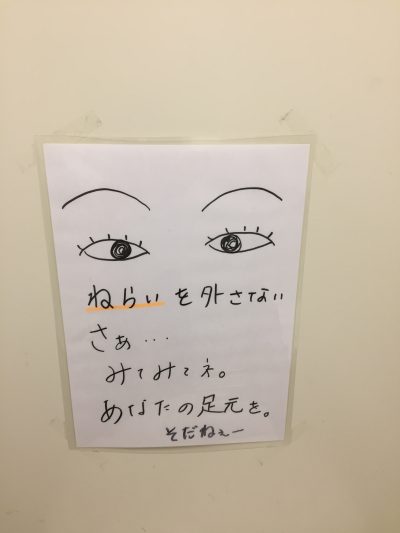 ねらいを外さない
さぁ…
みてみてネ。
あなたの足元を。
そだねぇー